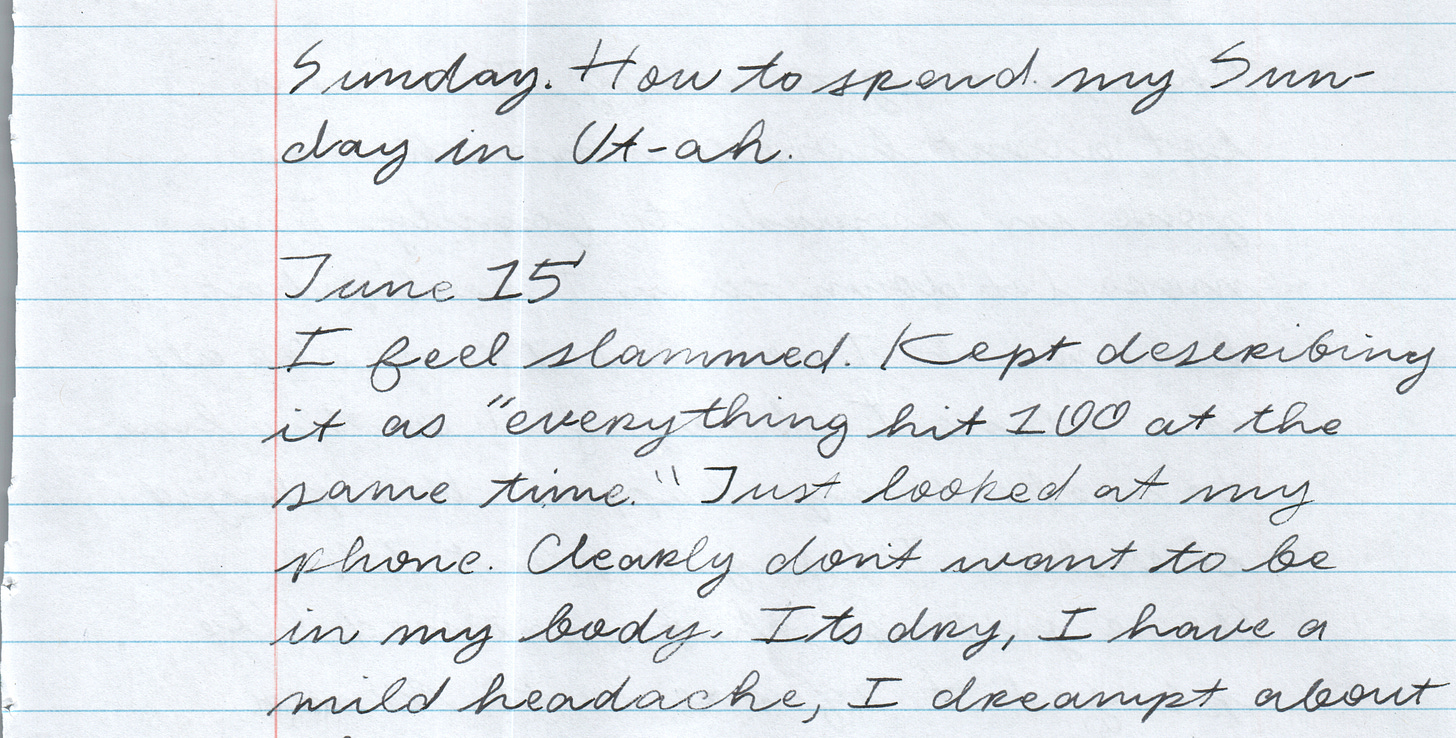 Sunday. How to spend my Sun-
day in Ut-ah.
June 15
I feel slammed. Kept describing
it as "everything hit 100 at the
same time." Just looked at my
phone. Clearly don't want to be
in my body. Its dry, I have a
mild headache, I dreampt about